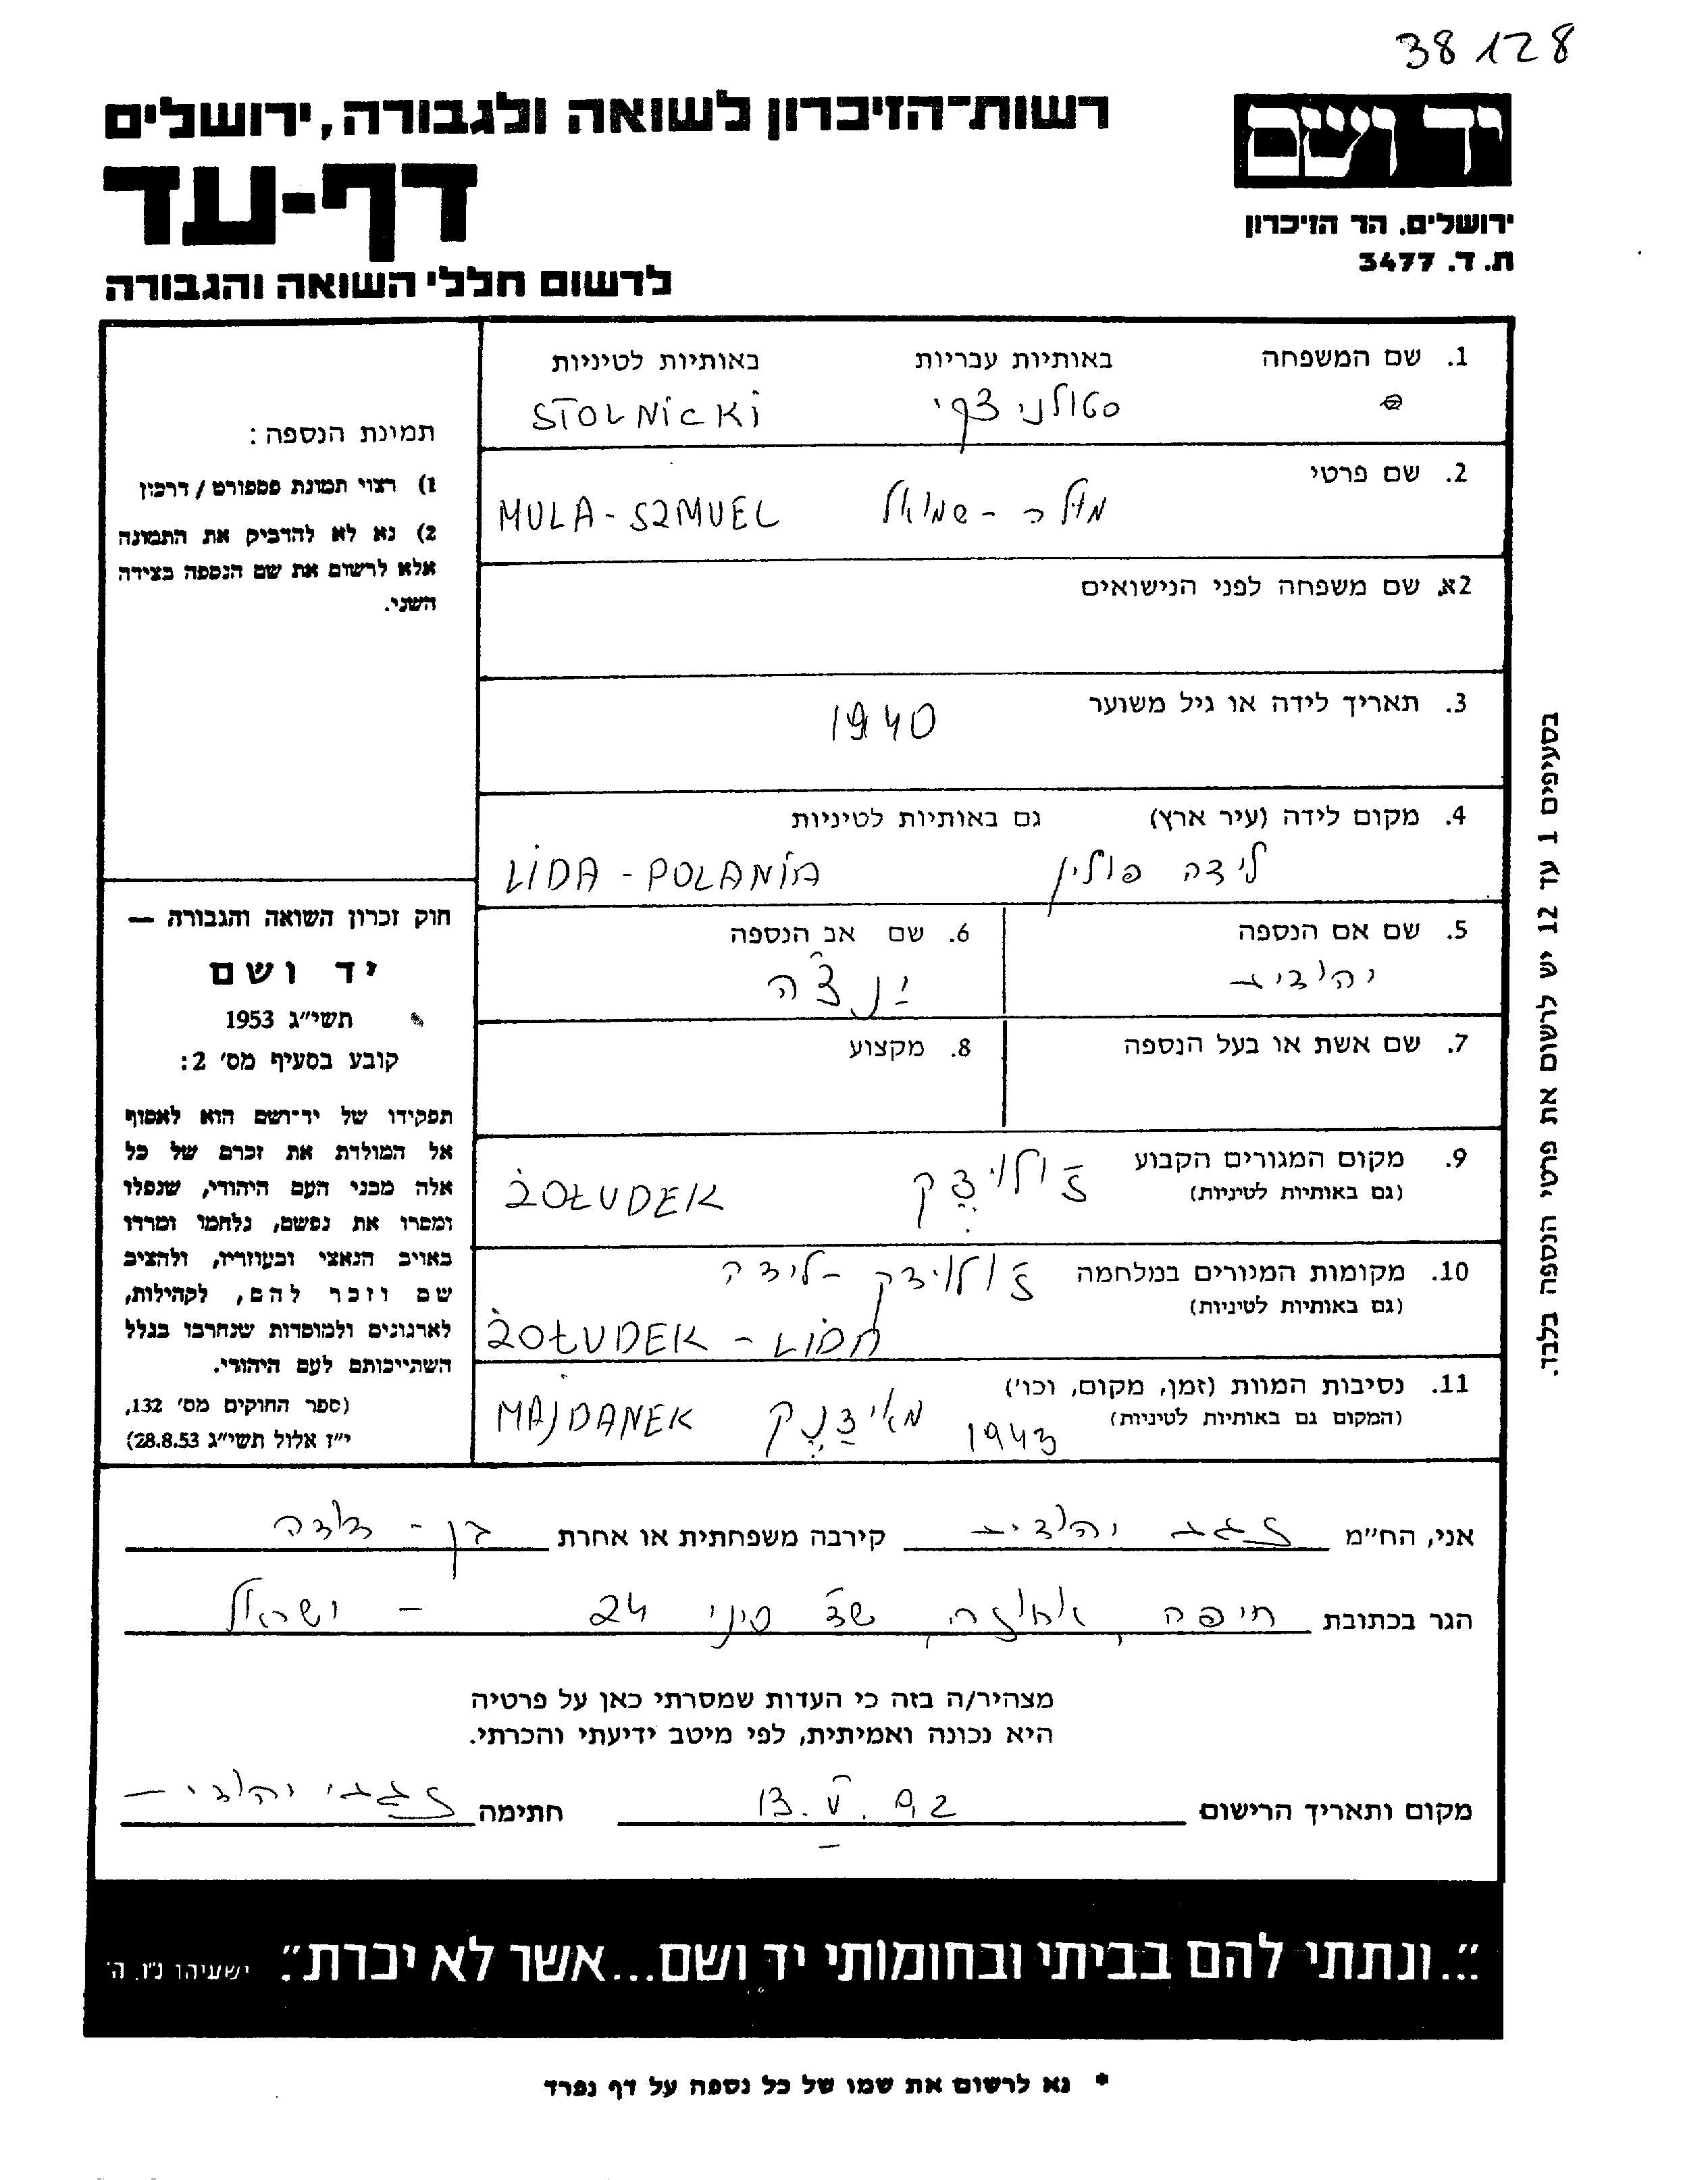 38128
רשות־הזיכרון לשואה ולגבורה, ירושלים
דף-עד
לרשום חללי השואה והגבורה
יד ושם
ירושלים. הר הזיכרון
ת. ד. 3477
1. שם המשפחה באותיות עבריות באותיות לטיניות
STOLNICKI
2. שם פרטי
מולה - שמואל MULA - SZMUEL
2א. שם משפחה לפני הנישואים
3. תאריך לידה או גיל משוער
1940
4. מקום לידה (עיר ארץ) גם באותיות לטיניות
לידה פולין LIDA - POLANIA
5. שם אם הנספה
יהודית
6. שם אב הנספה
7. שם אשת או בעל הנספה
8. מקצוע
9. מקום המגורים הקבוע
(גם באותיות לטיניות)
ŻOŁUDEK
10. מקומות המגורים במלחמה
(גם באותיות לטיניות)
ŻOŁUDEK - LIDA
11. נסיבות המוות (זמן, מקום, וכו')
(המקום גם באותיות לטיניות)
1943 מאידנק MAJDANEK
תמונת הנספה:
1) רצוי תמונת פספורט / דרכון
2) נא לא להדביק את התמונה
אלא לרשום את שם הנספה בצידה
השני.
חוק זכרון השואה והגבורה —
יד ושם
תשי״ג 1953
קובע בסעיף מס׳ 2:
תפקידו של יד־ושם הוא לאסוף
אל המולדת את זכרם של כל
אלה מבני העם היהודי, שנפלו
ומסרו את נפשם, נלחמו ומרדו
באויב הנאצי ובעוזריו, ולהציב
שם וזכר להם, לקהילות,
לארגונים ולמוסדות שנחרבו בגלל
השתייכותם לעם היהודי.
(ספר החוקים מס׳ 132,
י״ז אלול תשי״ג 28.8.53)
בסעיפים 1 עד 12 יש לרשום את פרטי הנספה בלבד.
אני, הח״מ יהודית קירבה משפחתית או אחרת בן - דודה
הגר בכתובת חיפה, אחוזה, שד סיני 24 - ישראל
מצהיר/ה בזה כי העדות שמסרתי כאן על פרטיה
היא נכונה ואמיתית, לפי מיטב ידיעתי והכרתי.
מקום ותאריך הרישום 13. V. 92 חתימה יהודית
״...ונתתי להם בביתי ובחומותי יד ושם...אשר לא יכרת״. ישעיהו נ״ו. ה׳
* נא לרשום את שמו של כל נספה על דף נפרד